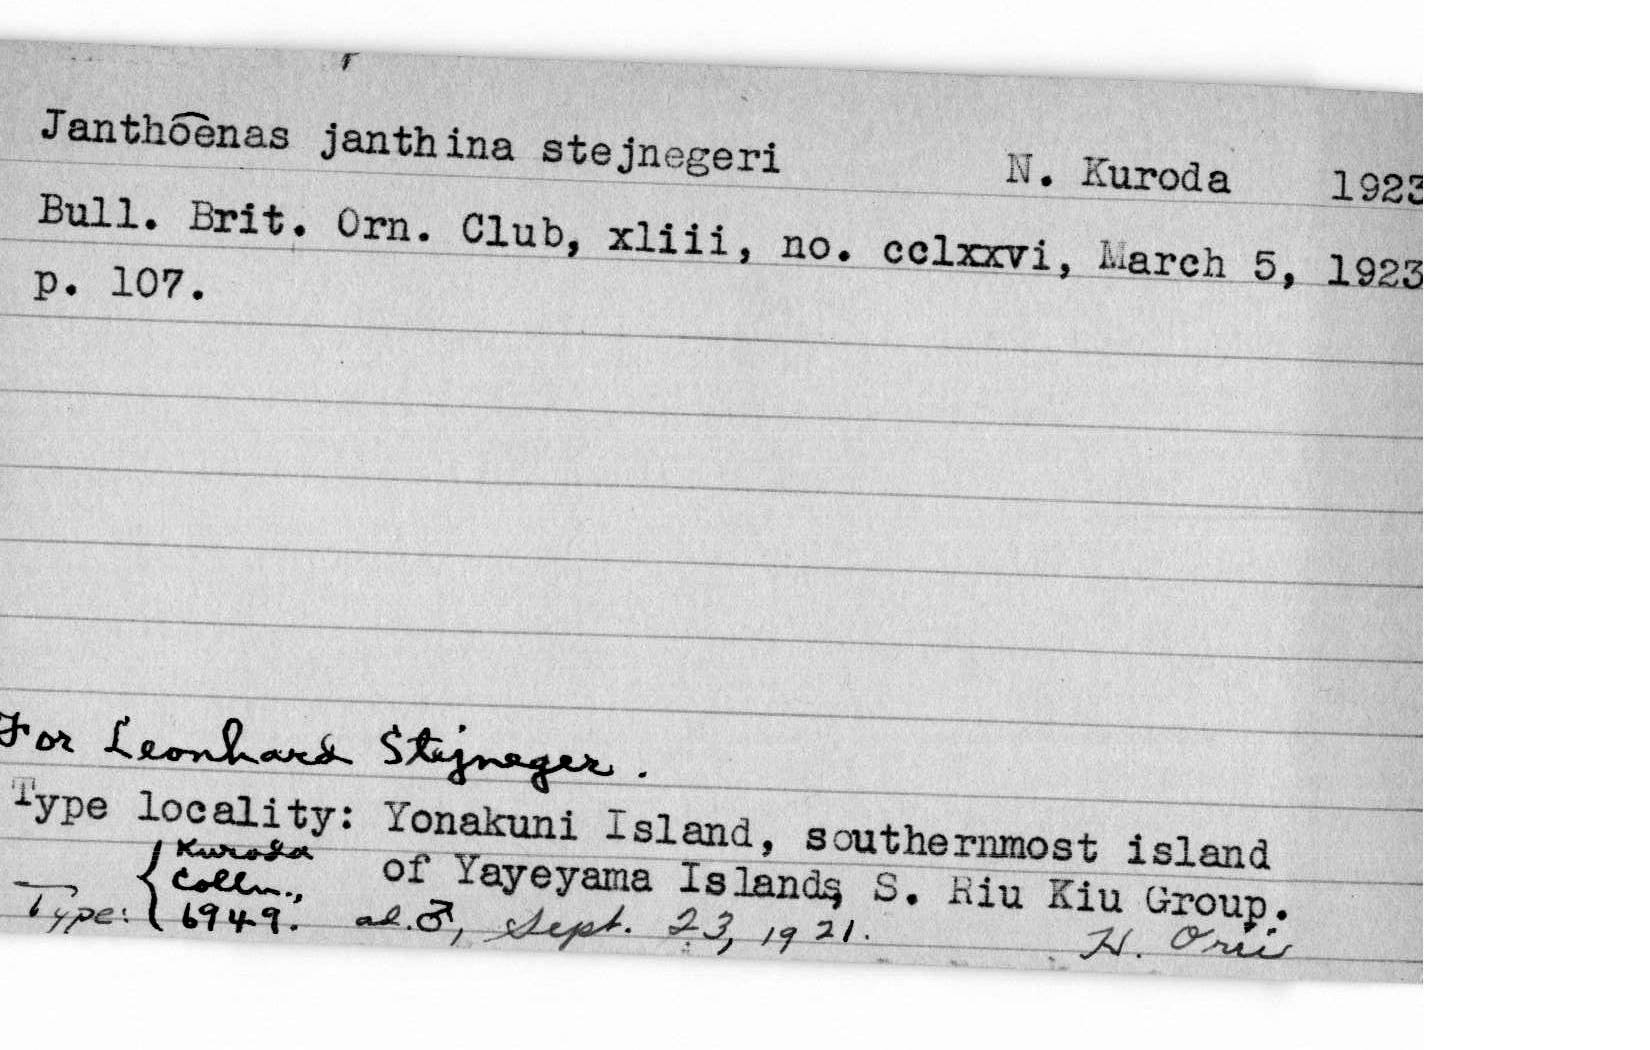 Janthoenas janthina stejnegeri N. Kuroda 1923
Bull. Brit. Orn. Club, xliii, no. cclxxvi, March 5, 1923
p. 107.
For Leonhard Stejneger.
Type locality: Yonakuni Island, southernmost island
of Yayeyama Islands, S. Riu Kiu Group.
Type: { Kuroda
Colln.,
6949. ad. ♂, Sept. 23, 1921. H. Orii